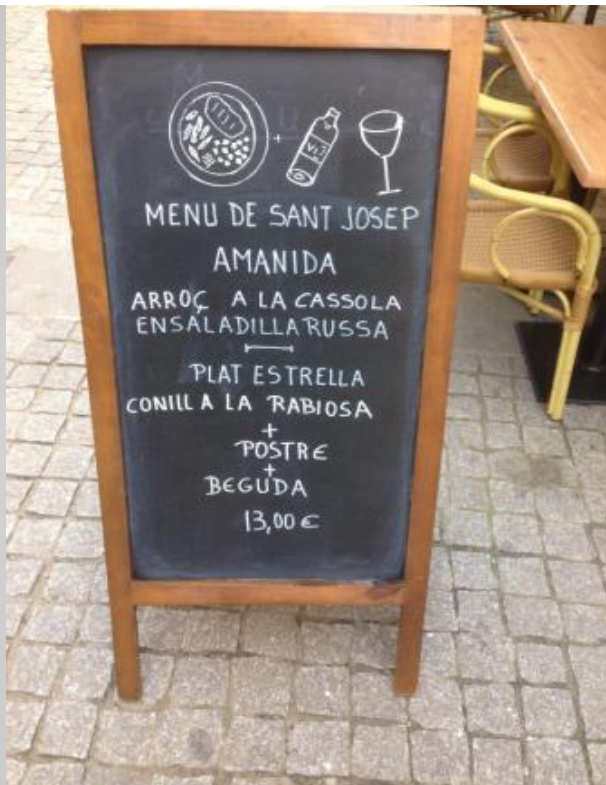 MENU DE SANT JOSEP
AMANIDA
ARROÇ A LA CASSOLA
ENSALADILLA RUSSA
PLAT ESTRELLA
CONILL A LA RABIOSA
+
POSTRE
+
BEGUDA
13,00 €